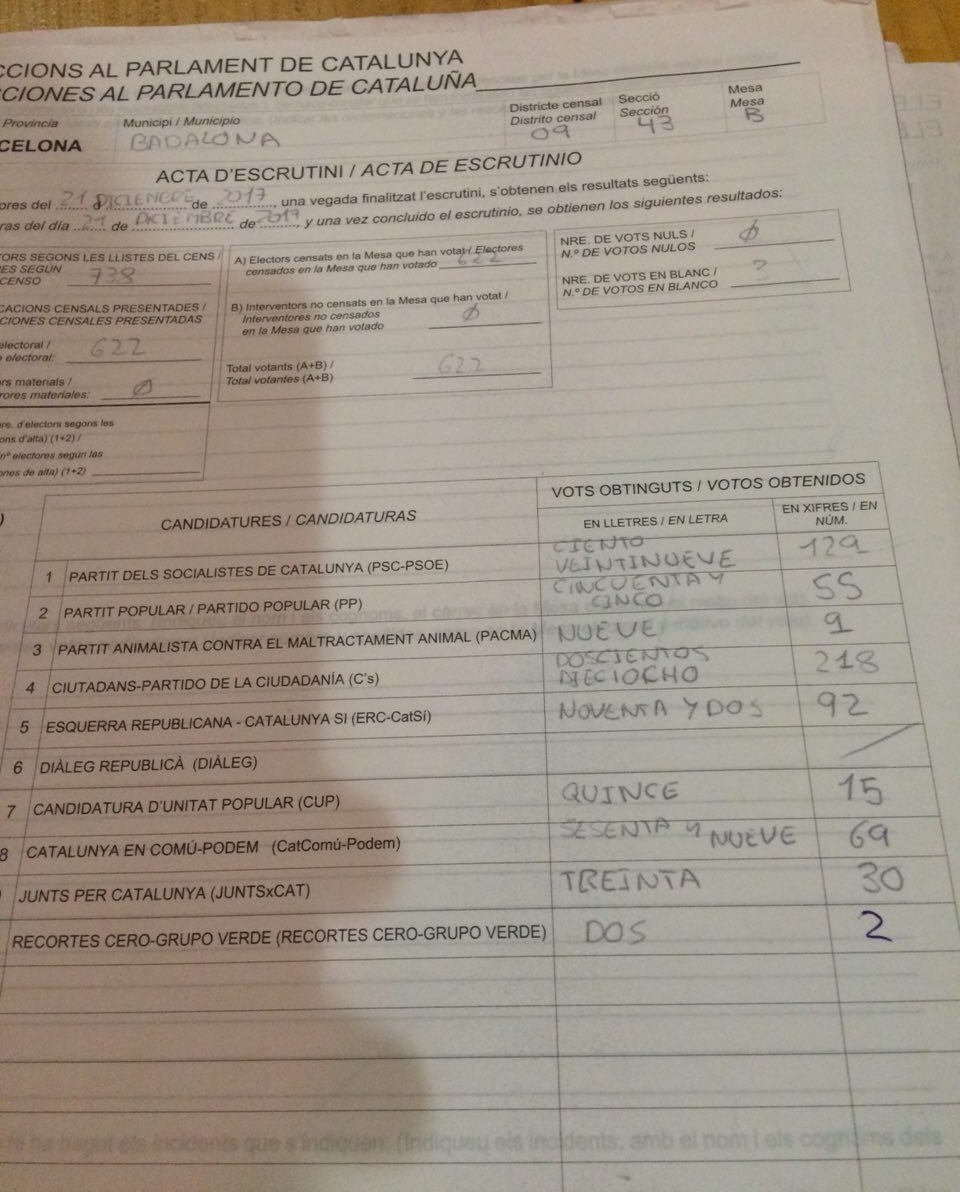 CCIONS AL PARLAMENT DE CATALUNYA
CCIONES AL PARLAMENTO DE CATALUÑA
Provincia
CELONA
Municipi / Municipio
BADALONA
Districte censal
Distrito censal
09
Secció
Sección
43
Mesa
Mesa
B
ACTA D'ESCRUTINI / ACTA DE ESCRUTINIO
ores del 21 DICIEMBRE de 2017, una vegada finalitzat l'escrutini, s'obtenen els resultats següents:
ras del día 21 de DICIEMBRE de 2017 y una vez concluido el escrutinio, se obtienen los siguientes resultados:
TORS SEGONS LES LLISTES DEL CENS /
RES SEGÚN
CENSO 738
CACIONS CENSALS PRESENTADES /
CIONES CENSALES PRESENTADAS
electoral /
electoral: 622
ors materials /
rores materiales: Ø
re. d'electors segons les
ons d'alta) (1+2) /
nº electores según las
ones de alta) (1+2)
A) Electors censats en la Mesa que han votat / Electores
censados en la Mesa que han votado 622
B) Interventors no censats en la Mesa que han votat /
Interventores no censados
en la Mesa que han votado Ø
Total votants (A+B) /
Total votantes (A+B) 622
NRE. DE VOTS NULS /
N.º DE VOTOS NULOS Ø
NRE. DE VOTS EN BLANC /
N.º DE VOTOS EN BLANCO 3
CANDIDATURES / CANDIDATURAS
VOTS OBTINGUTS / VOTOS OBTENIDOS
EN LLETRES / EN LETRA
EN XIFRES / EN
NÚM.
1 PARTIT DELS SOCIALISTES DE CATALUNYA (PSC-PSOE) CIENTO VEINTINUEVE 129
2 PARTIT POPULAR / PARTIDO POPULAR (PP) CINCUENTA Y CINCO 55
3 PARTIT ANIMALISTA CONTRA EL MALTRACTAMENT ANIMAL (PACMA) NUEVE 9
4 CIUTADANS-PARTIDO DE LA CIUDADANÍA (C's) DOSCIENTOS DIECIOCHO 218
5 ESQUERRA REPUBLICANA - CATALUNYA SI (ERC-CatSí) NOVENTA Y DOS 92
6 DIÀLEG REPUBLICÀ (DIÀLEG)
7 CANDIDATURA D'UNITAT POPULAR (CUP) QUINCE 15
8 CATALUNYA EN COMÚ-PODEM (CatComú-Podem) SESENTA Y NUEVE 69
JUNTS PER CATALUNYA (JUNTSxCAT) TREINTA 30
RECORTES CERO-GRUPO VERDE (RECORTES CERO-GRUPO VERDE) DOS 2
hi ha hagut els incidents que s'indiquen: (Indiqueu els incidents, amb el nom i els cognoms dels